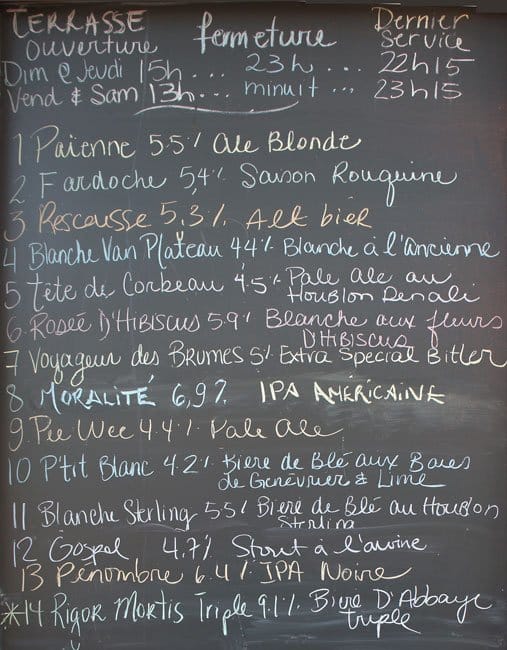 TERRASSE
ouverture fermeture Dernier Service
Dim @ Jeudi 15h... 23h ... 22h15
Vend & Sam 13h... minuit ... 23h15
1 Païenne 5.5% Ale Blonde
2 Fardoche 5,4% Saison Rouquine
3 Rescousse 5,3% Alt bier
4 Blanche Van Plateau 4.4% Blanche à l'ancienne
5 Tête de Corbeau 4.5% Pale ale au
Houblon Denali
6 Roseé D'Hibiscus 5.9% Blanche aux fleurs
D'HiBiscus
7 Voyageur des Brumes 5% Extra Special Bitter
8 MORALITÉ 6,9% IPA AMÉRICAINE
9 Pee Wee 4.4% Pale Ale
10 P'tit Blanc 4.2% Bière de Blé aux Baies
de Genévrier & Lime
11 Blanche Sterling 5.5% Bière de Blé au Houblon
Sterling
12 Gospel 4.7% Stout à l'avoine
13 Pénombre 6.4% IPA Noire
*14 Rigor Mortis Triple 9.1% Biere D'Abbaye
triple